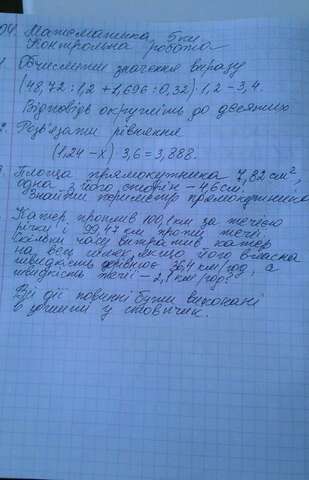 04. Математика, 5 кл.
Контрольна робота
1. Обчислити значення виразу
(48,72 : 1,2 + 1,696 : 0,32) · 1,2 – 3,4.
Відповідь округліть до десятих
2. Розв'язати рівняння
(1,24 – х) · 3,6 = 3,888.
3. Площа прямокутника 7,82 см²,
одна з його сторін – 4,6 см.
Знайти периметр прямокутника
Катер проплив 100,1 км за течією
річки і 99,47 км проти течії.
Скільки часу витратив катер
на весь шлях, якщо його власна
швидкість дорівнює 36,4 км/год, а
швидкість течії – 2,1 км/год?
Всі дії повинні бути виконані
в стовпчик.